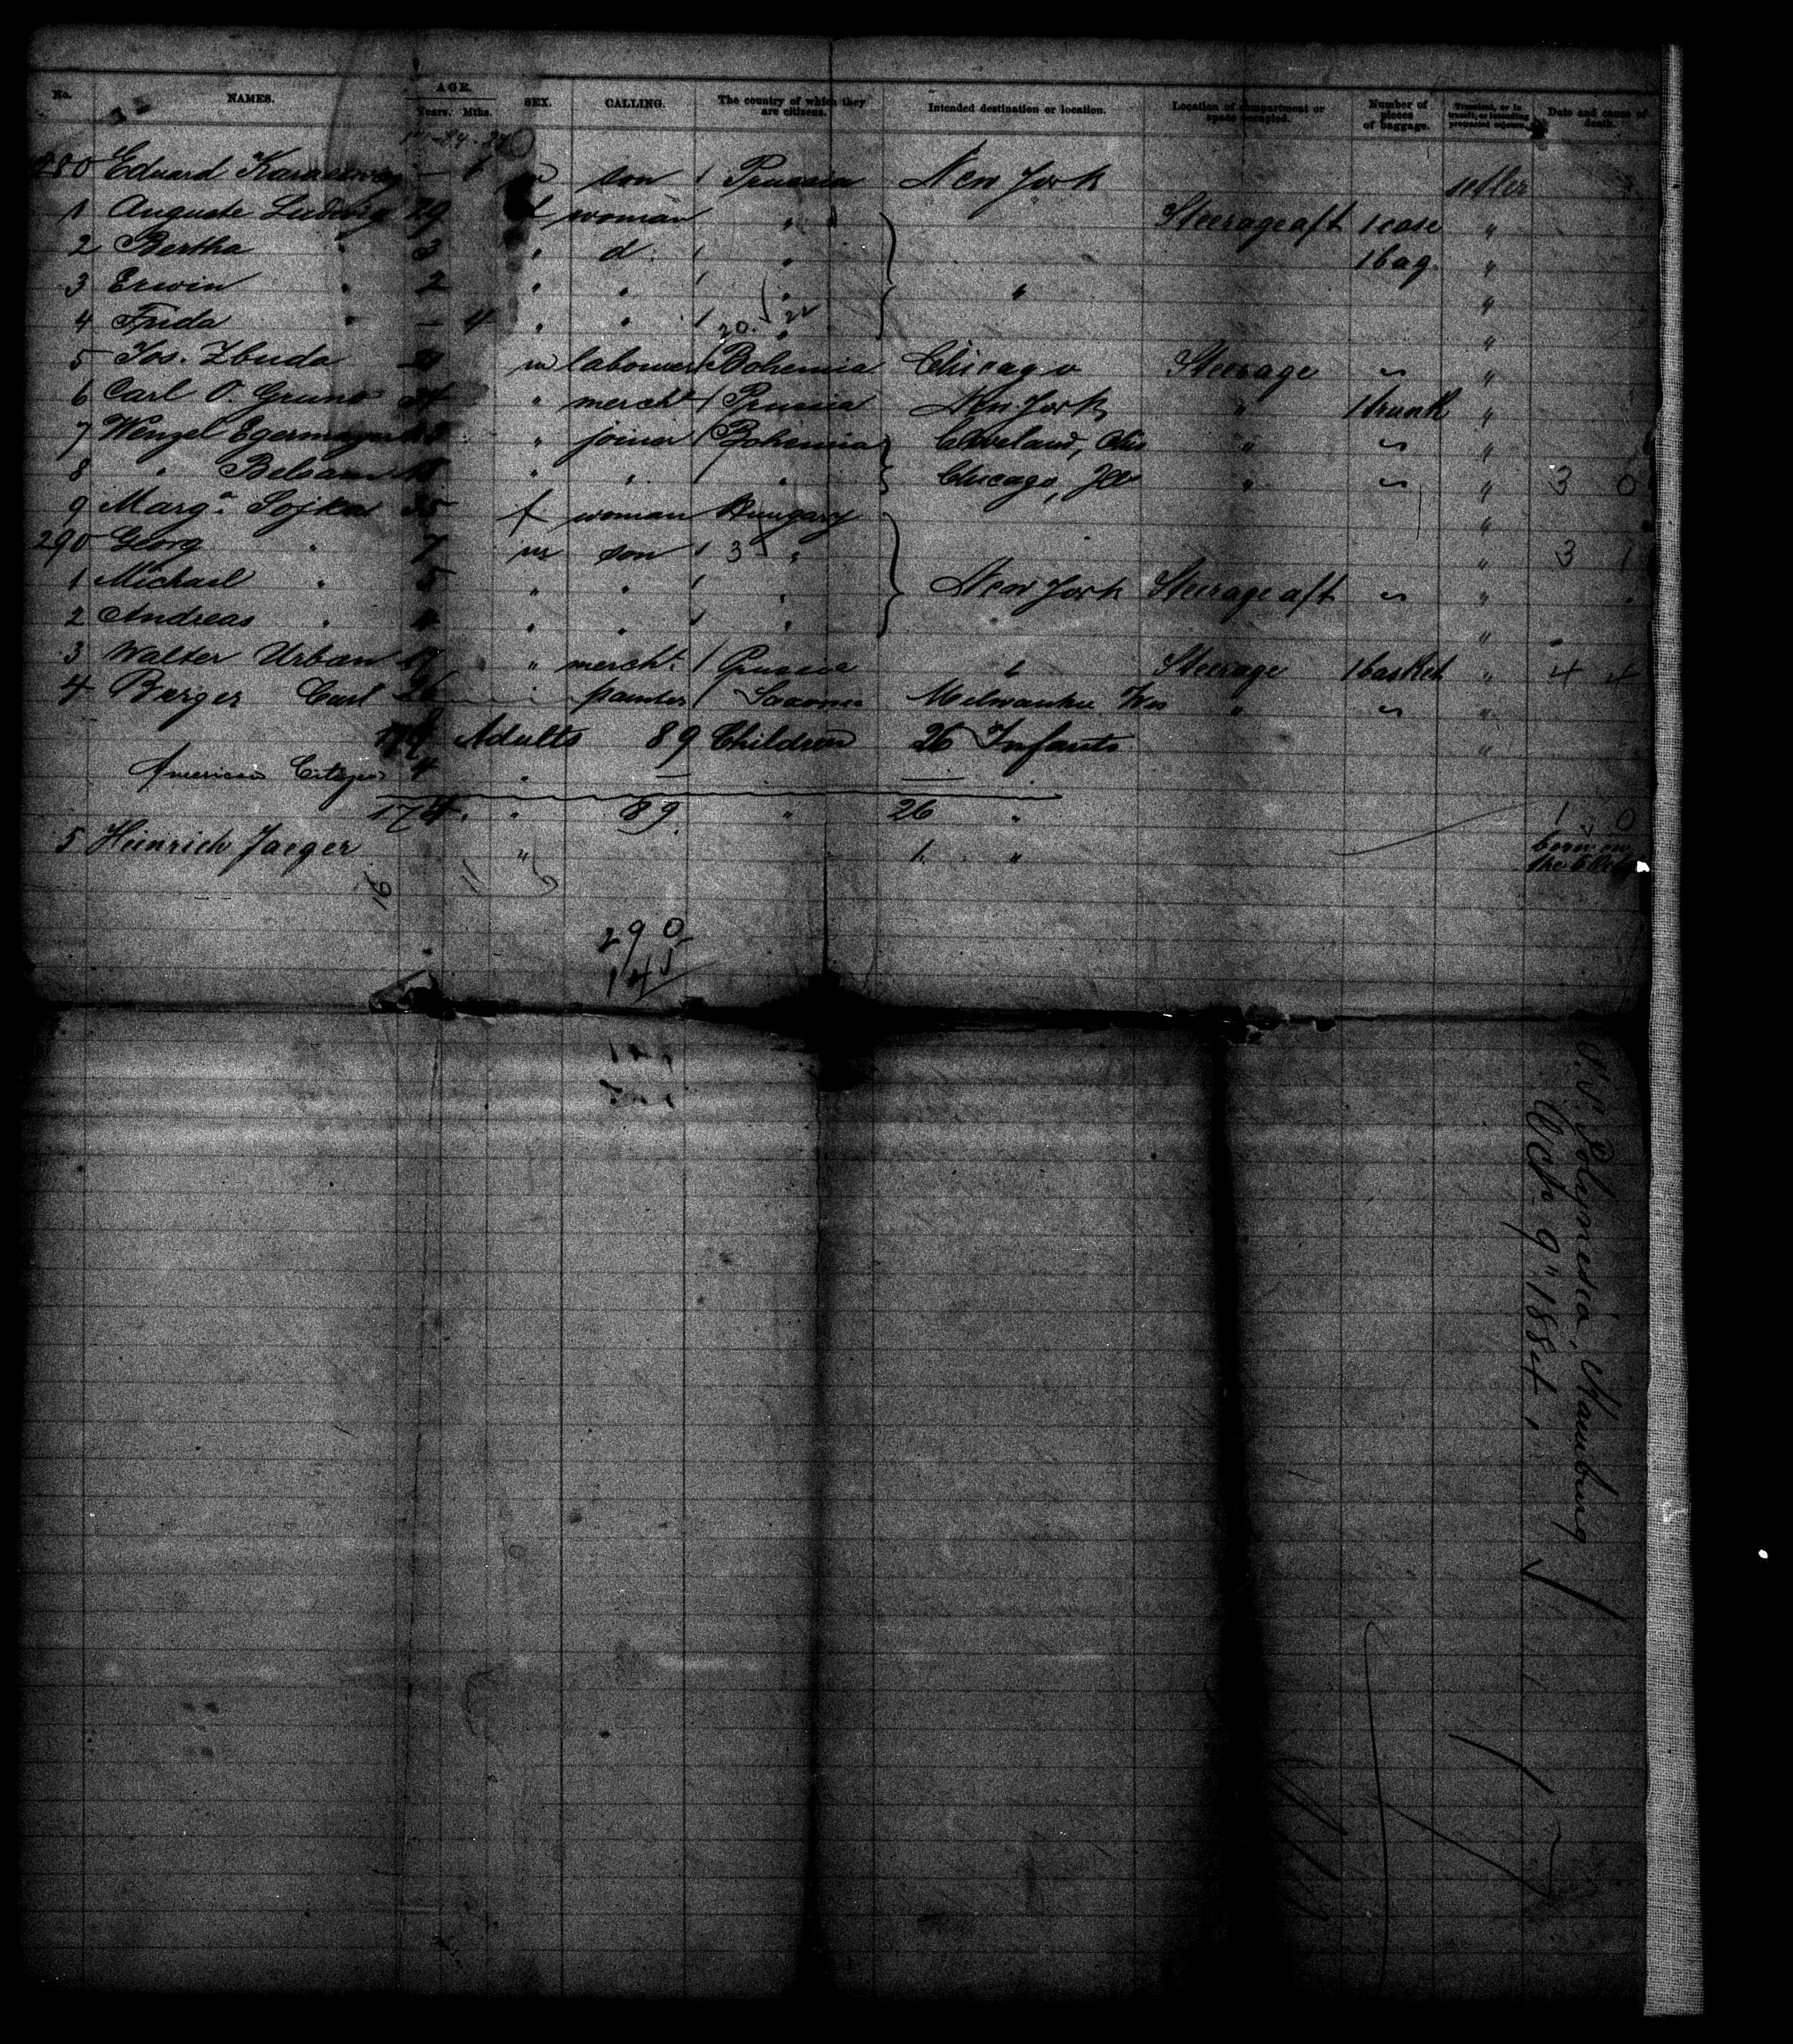 No. NAMES. AGE. Years. Mths. SEX. CALLING. The country of which they are citizens. Intended destination or location. Location of compartment or space occupied. Number of pieces of baggage. Transient, or in transit, or intending protracted sojourn. Date and cause of death.
280 Eduard — 6 m son / Prussia New York settler
1 Auguste Ludwig 29 f woman " Steerage aft 1 case "
2 Bertha " 3 " d. / " 1 bag "
3 Erwin " 2 " " / " " "
4 Frida — 4 " " / " "
20. 22
5 Jos. Zbuda m labourer / Bohemia Chicago Steerage ~ "
6 Carl O. Gruno 24 " mercht / Prussia New York " 1 trunk "
7 Wenzel Egermayer " joiner / Bohemia Cleveland, Ohio " ~ "
8 " 18 " " / " Chicago, Ill " ~ " 3 0
9 Marga. Sojka 35 f woman Hungary "
290 Georg " 7 m son / 3 " " 3 1
1 Michael " 5 " " / " New York Steerage aft ~ "
2 Andreas " 4 " " / " "
3 Walter Urban " mercht. / Prussia " Steerage 1 basket " 4 4
4 Berger Carl 26 " painter / Saxonia Milwaukee Wis " ~ "
Adults 89 Children 26 Infants "
American Citizen 4 "
174. " 89. " 26 " 1 0
5 Heinrich Jaeger " 1. " born on the 6 Oct
16 11 6
290
145
S.S. Polynesia, Hamburg
Oct. 9" 1884.